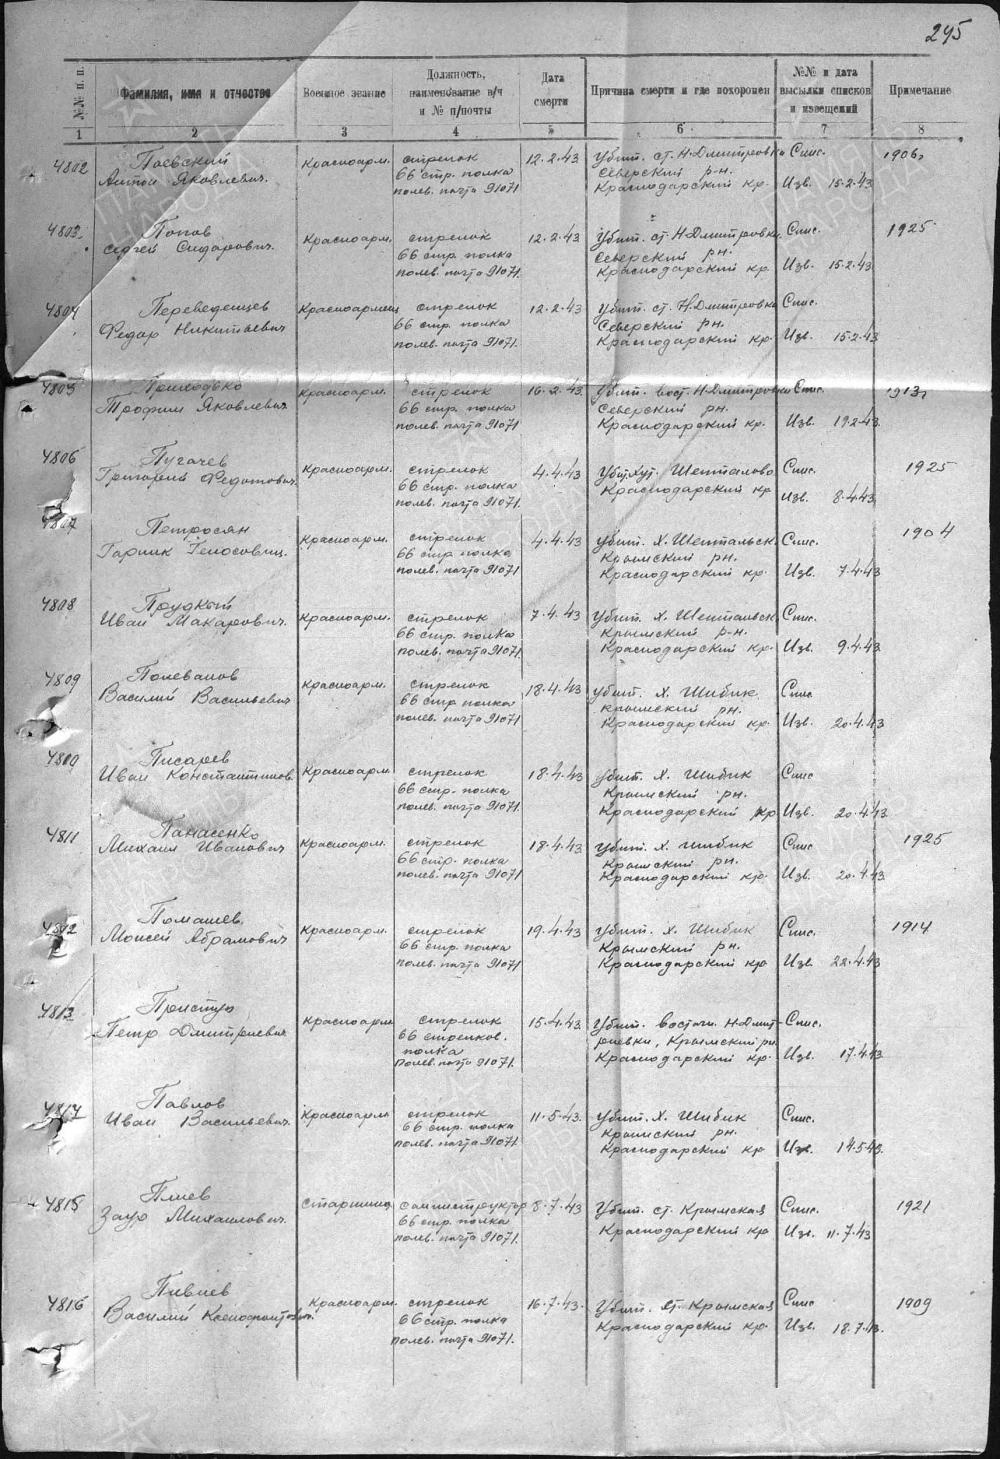 295
№№ п. п.
Фамилия, имя и отчество
Военное звание
Должность,
наименование в/ч
и № п/почты
Дата
смерти
Причина смерти и где похоронен
№№ и дата
высылки списков
и извещений
Примечание
1 2 3 4 5 6 7 8
4802 Поевский Красноарм. стрелок 12.2.43 Убит. ст. Н-Дмитровка Спис. 1906г
Антон Яковлевич. 66 стр. полка Северский р-н.
полев. почта 91071 Краснодарский кр. Изв. 15-2-43
4803 Попов Красноарм. стрелок 12.2.43 Убит. ст. Н-Дмитровка Спис. 1925
Сергей Сидорович. 66 стр. полка Северский рн.
полев. почта 91071 Краснодарский кр. Изв. 15-2-43
4804 Переведенцев Красноармеец стрелок 12.2.43 Убит. ст. Н-Дмитровка Спис.
Федор Никитьевич 66 стр. полка Северский рн.
полев. почта 91071. Краснодарский кр. Изв. 15-2-43
4805 Приходько Красноарм. стрелок 16.2.43. Убит. вост. Н-Дмитровка Спис. 1913г
Трофим Яковлевич 66 стр. полка Северский рн.
полев. почта 91071 Краснодарский кр. Изв. 19.2.43.
4806 Пугачев Красноарм. стрелок 4.4.43 Убит. Хут. Шепталово Спис. 1925
Григорий Федотович. 66 стр. полка Краснодарский кр
полев. почта 91071. Изв. 8.4.43.
4807 Петросян Красноарм. стрелок 4.4.43 Убит. х. Шептальск. Спис. 1904
Гарник 66 стр полка Крымский рн.
полев. почта 91071 Краснодарский кр. Изв. 7.4.43
4808 Прудкий Красноарм. стрелок 7.4.43 Убит. х. Шептальск Спис.
Иван Макарович. 66 стр. полка Крымский р-н.
полев. почта 91071. Краснодарский кр. Изв. 9.4.43.
4809 Полевалов Красноарм. стрелок 18.4.43 Убит. х. Шибик Спис
Василий Васильевич 66 стр полка Крымский рн.
полев. почта 91071 Краснодарский кр. Изв. 20.4.43
4800 Писарев Красноарм. стрелок 18.4.43 Убит. х. Шибик Спис
Иван Константинов. 66 стр. полка Крымский рн.
полев. почта 91071. Краснодарский кр Изв. 20.4.43
4811 Панасенко Красноарм. стрелок 18.4.43 Убит. х. Шибик Спис 1925
Михаил Иванович 66 стр. полка Крымский рн.
полев. почта 91071 Краснодарский кр. Изв. 20.4.43
4812 Помашев. Красноарм. стрелок 19.4.43 Убит. х. Шибик Спис. 1914
Моисей Абрамович 66 стр. полка Крымский рн.
полев. почта 91071 Краснодарский кр Изв. 22.4.43
4813 Приступ Красноарм стрелок 15.4.43. Убит. восточн. Н-Дмит- Спис.
Петр Дмитриевич 66 стрелков. риевки, Крымский рн.
полка
полев. почта 91071. Краснодарский кр. Изв. 17.4.43
4814 Павлов Красноарм стрелок 11.5.43. Убит. х. Шибик Спис.
Иван Васильевич. 66 стр. полка Крымский рн.
полев. почта 91071 Краснодарский кр Изв. 14.5.43.
4815 Плиев старшина санинструктор 8.7.43 Убит. ст. Крымская Спис. 1921
Заур Михайлович. 66 стр. полка Краснодарский кр Изв. 11.7.43
полев. почта 91071.
4816 Пивнев Красноарм. стрелок 16.7.43. Убит. ст. Крымская Спис 1909
Василий Ксенофонтович. 66 стр. полка Краснодарский кр. Изв. 18.7.43.
полев. почта 91071.
ПАМЯТЬ НАРОДА